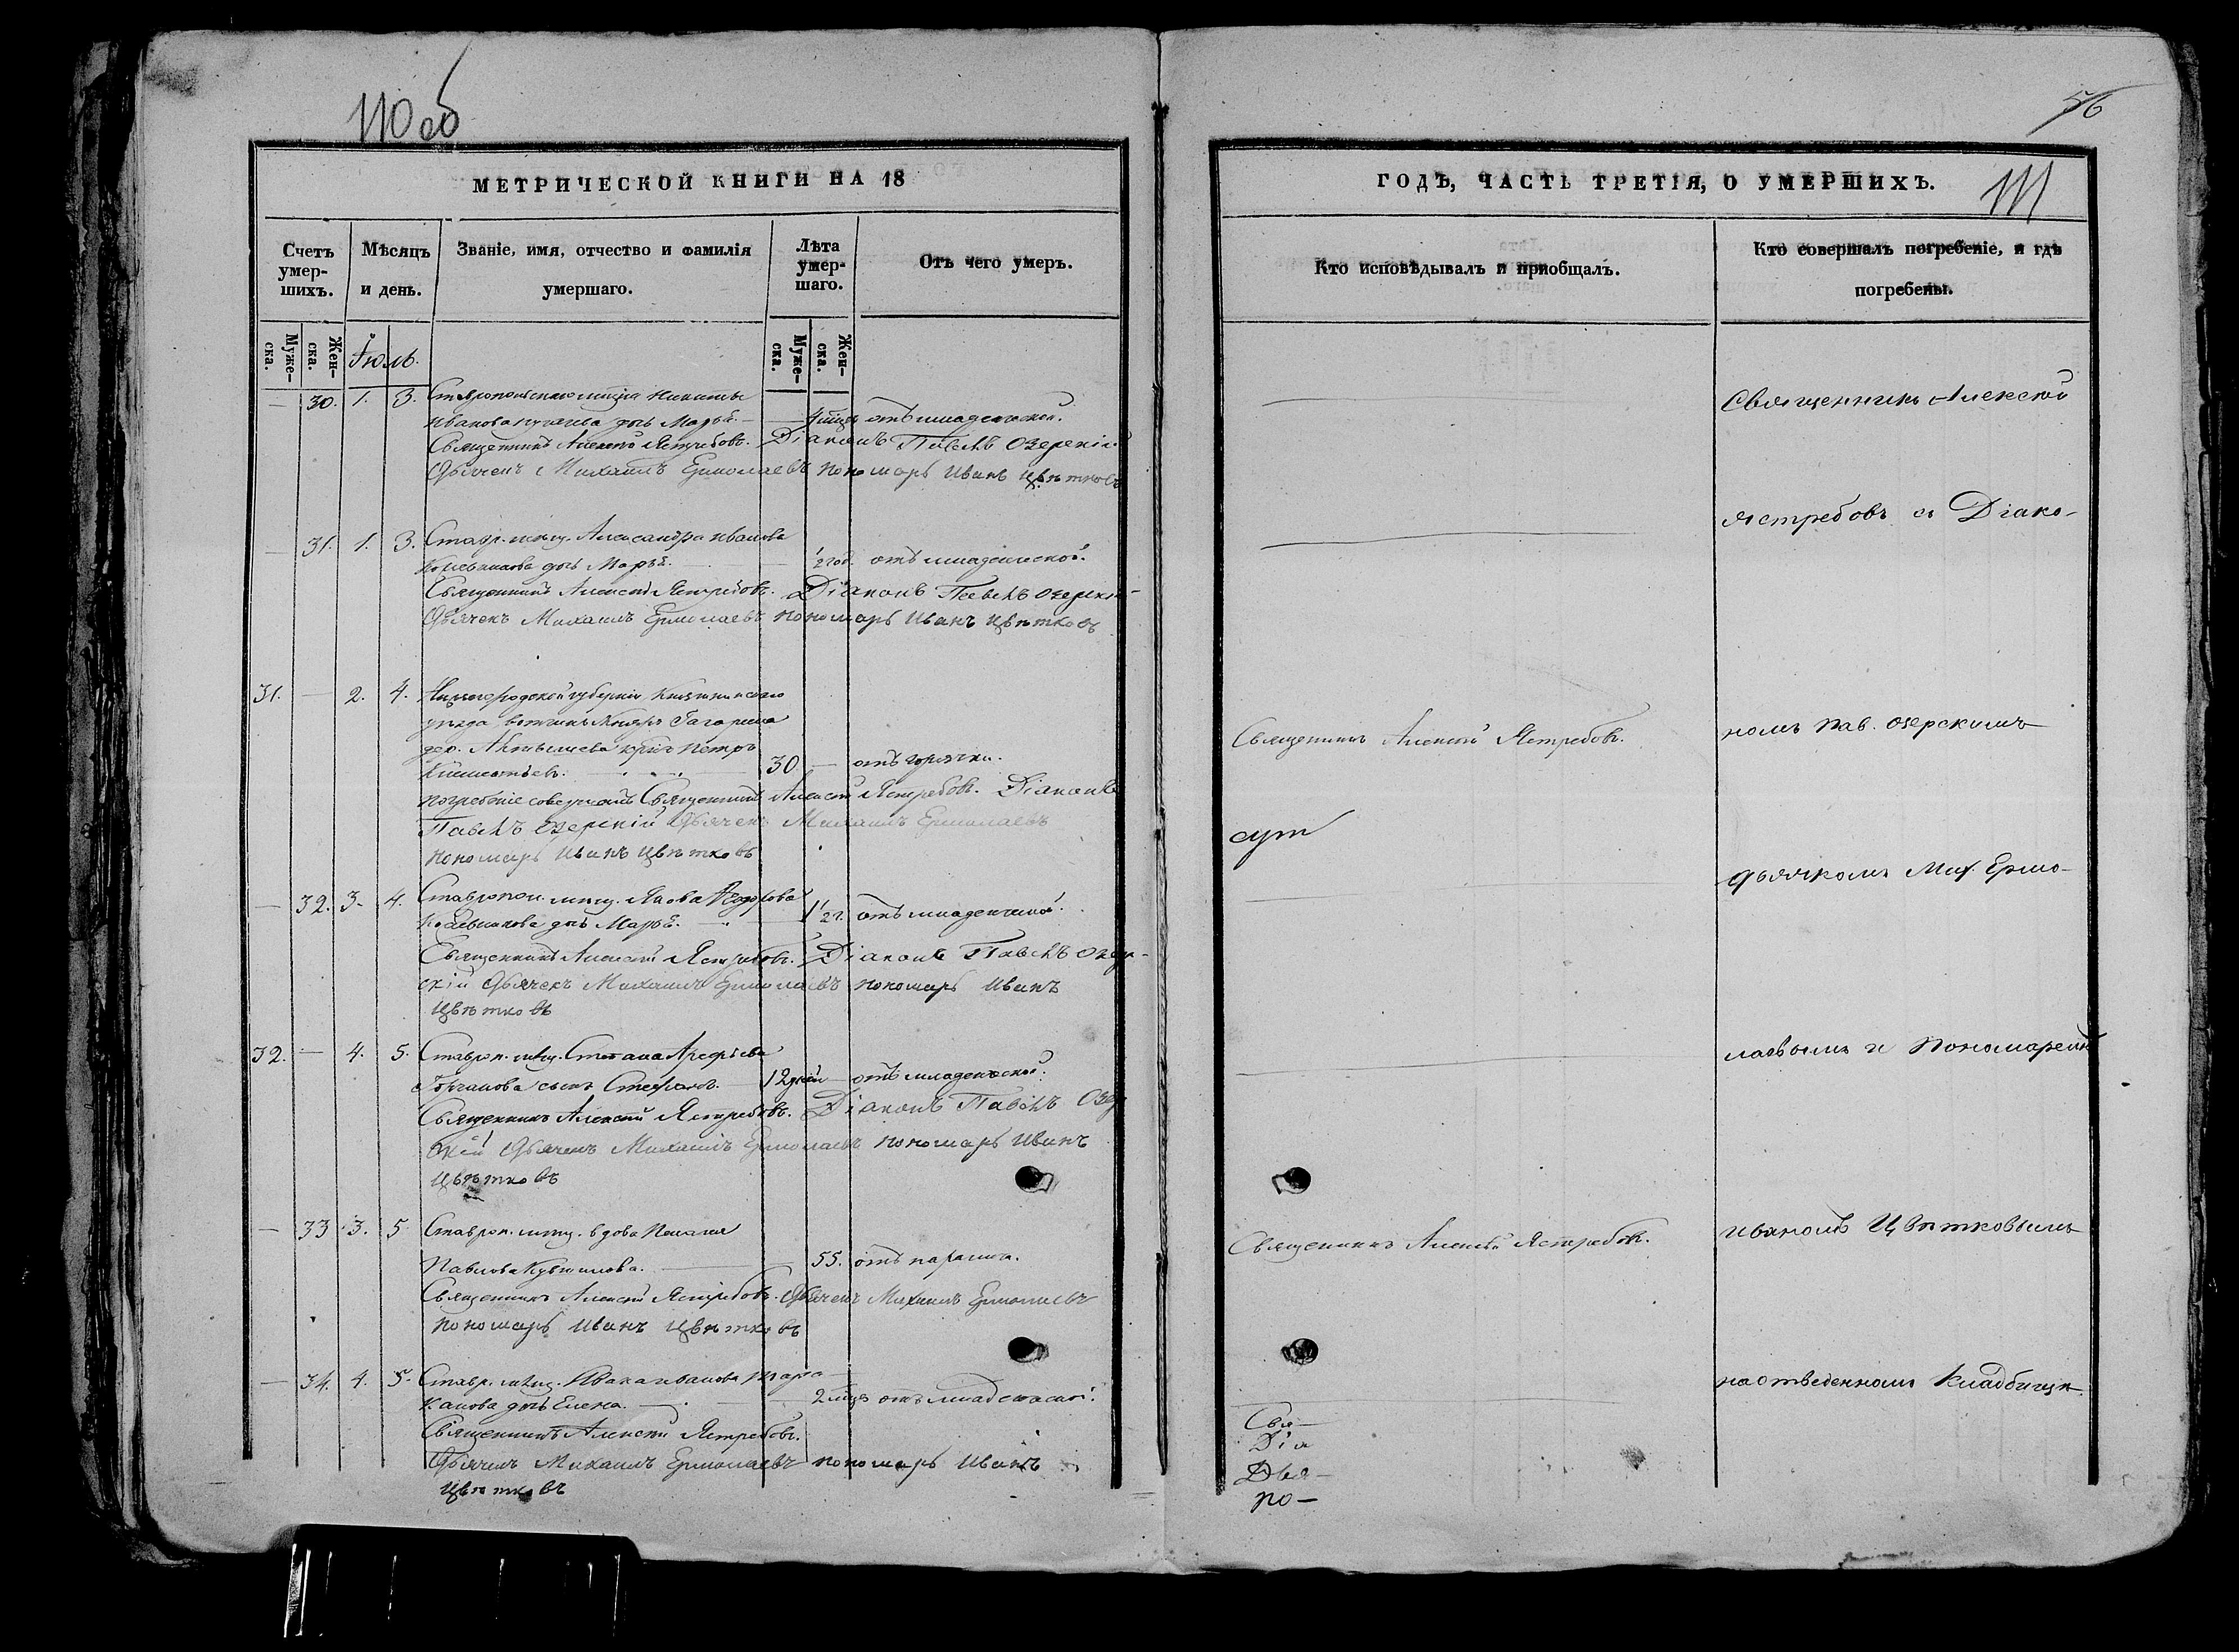 110 об
МЕТРИЧЕСКОЙ КНИГИ НА 18
Счетъ умер-шихъ.
Мѣсяцъ и день.
Званіе, имя, отчество и фамилія умершаго.
Лѣта умер-шаго.
Отъ чего умеръ.
Муже-ска.
Жен-ска.
Іюль.
Муже-ска.
Жен-ска.
— 30. 1. 3. Ставропольскаго Никиты
Иванова дочь Марья. — отъ младенческой.
Священникъ Алексей Ястребовъ. Діаконъ Павелъ Озерскій
Дьячекъ Михаилъ Ермолаевъ пономарь Иванъ Цвѣтковъ
— 31. 1. 3. Ставр. мѣщ. Александра Иванова
дочь Марья. — 1/2 год. отъ младенческой.
Священникъ Алексей Ястребовъ. Діаконъ Павелъ Озерскій
Дьячекъ Михаилъ Ермолаевъ пономарь Иванъ Цвѣтковъ
31. — 2. 4. Нижегородской губерніи Княгининскаго
уѣзда вотчины Князя Гагарина
дер. крес. Петръ
30 — отъ горячки.
погребеніе совершалъ Священникъ Алексей Ястребовъ. Діаконъ
Павелъ Озерскій Дьячекъ Михаилъ Ермолаевъ
пономарь Иванъ Цвѣтковъ
— 32. 3. 4. Ставропол. мѣщ.
дочь Марья. — 1/2 г. отъ младенческой.
Священникъ Алексей Ястребовъ. Діаконъ Павелъ Озер-
скій Дьячекъ Михаилъ Ермолаевъ пономарь Иванъ
Цвѣтковъ
32. — 4. 5. Ставроп. мѣщ. Степана Арефьева
сынъ Стефанъ. 12 дней — отъ младенческой.
Священникъ Алексей Ястребовъ. Діаконъ Павелъ Озер
скій Дьячекъ Михаилъ Ермолаевъ пономарь Иванъ
Цвѣтковъ
— 33 3. 5 Ставроп. мѣщ. вдова Пелагия
Павлова — 55. отъ паралича.
Священникъ Алексей Ястребовъ. Дьячекъ Михаилъ Ермолаевъ
пономарь Иванъ Цвѣтковъ
— 34. 4. 5. Ставр. мѣщ. Ивана Иванова
дочь Елена. — 2 мѣся отъ младенческой.
Священникъ Алексей Ястребовъ.
Дьячекъ Михаилъ Ермолаевъ пономарь Иванъ
Цвѣтковъ
56
ГОДЪ, ЧАСТЬ ТРЕТІЯ, О УМЕРШИХЪ.
111
Кто исповѣдывалъ и пріобщалъ.
Кто совершалъ погребеніе, и гдѣ погребены.
Священникъ Алексей
Ястребовъ съ Діако-
Священникъ Алексей Ястребовъ.
номъ Пав. Озерскимъ
дьячкомъ Мих. Ермо-
лаевымъ и Пономаремъ
Священникъ Алексей Ястребов.
Иваномъ Цвѣтковымъ
на отведенномъ кладбищѣ.
Свя—
Діа
Дья—
по—